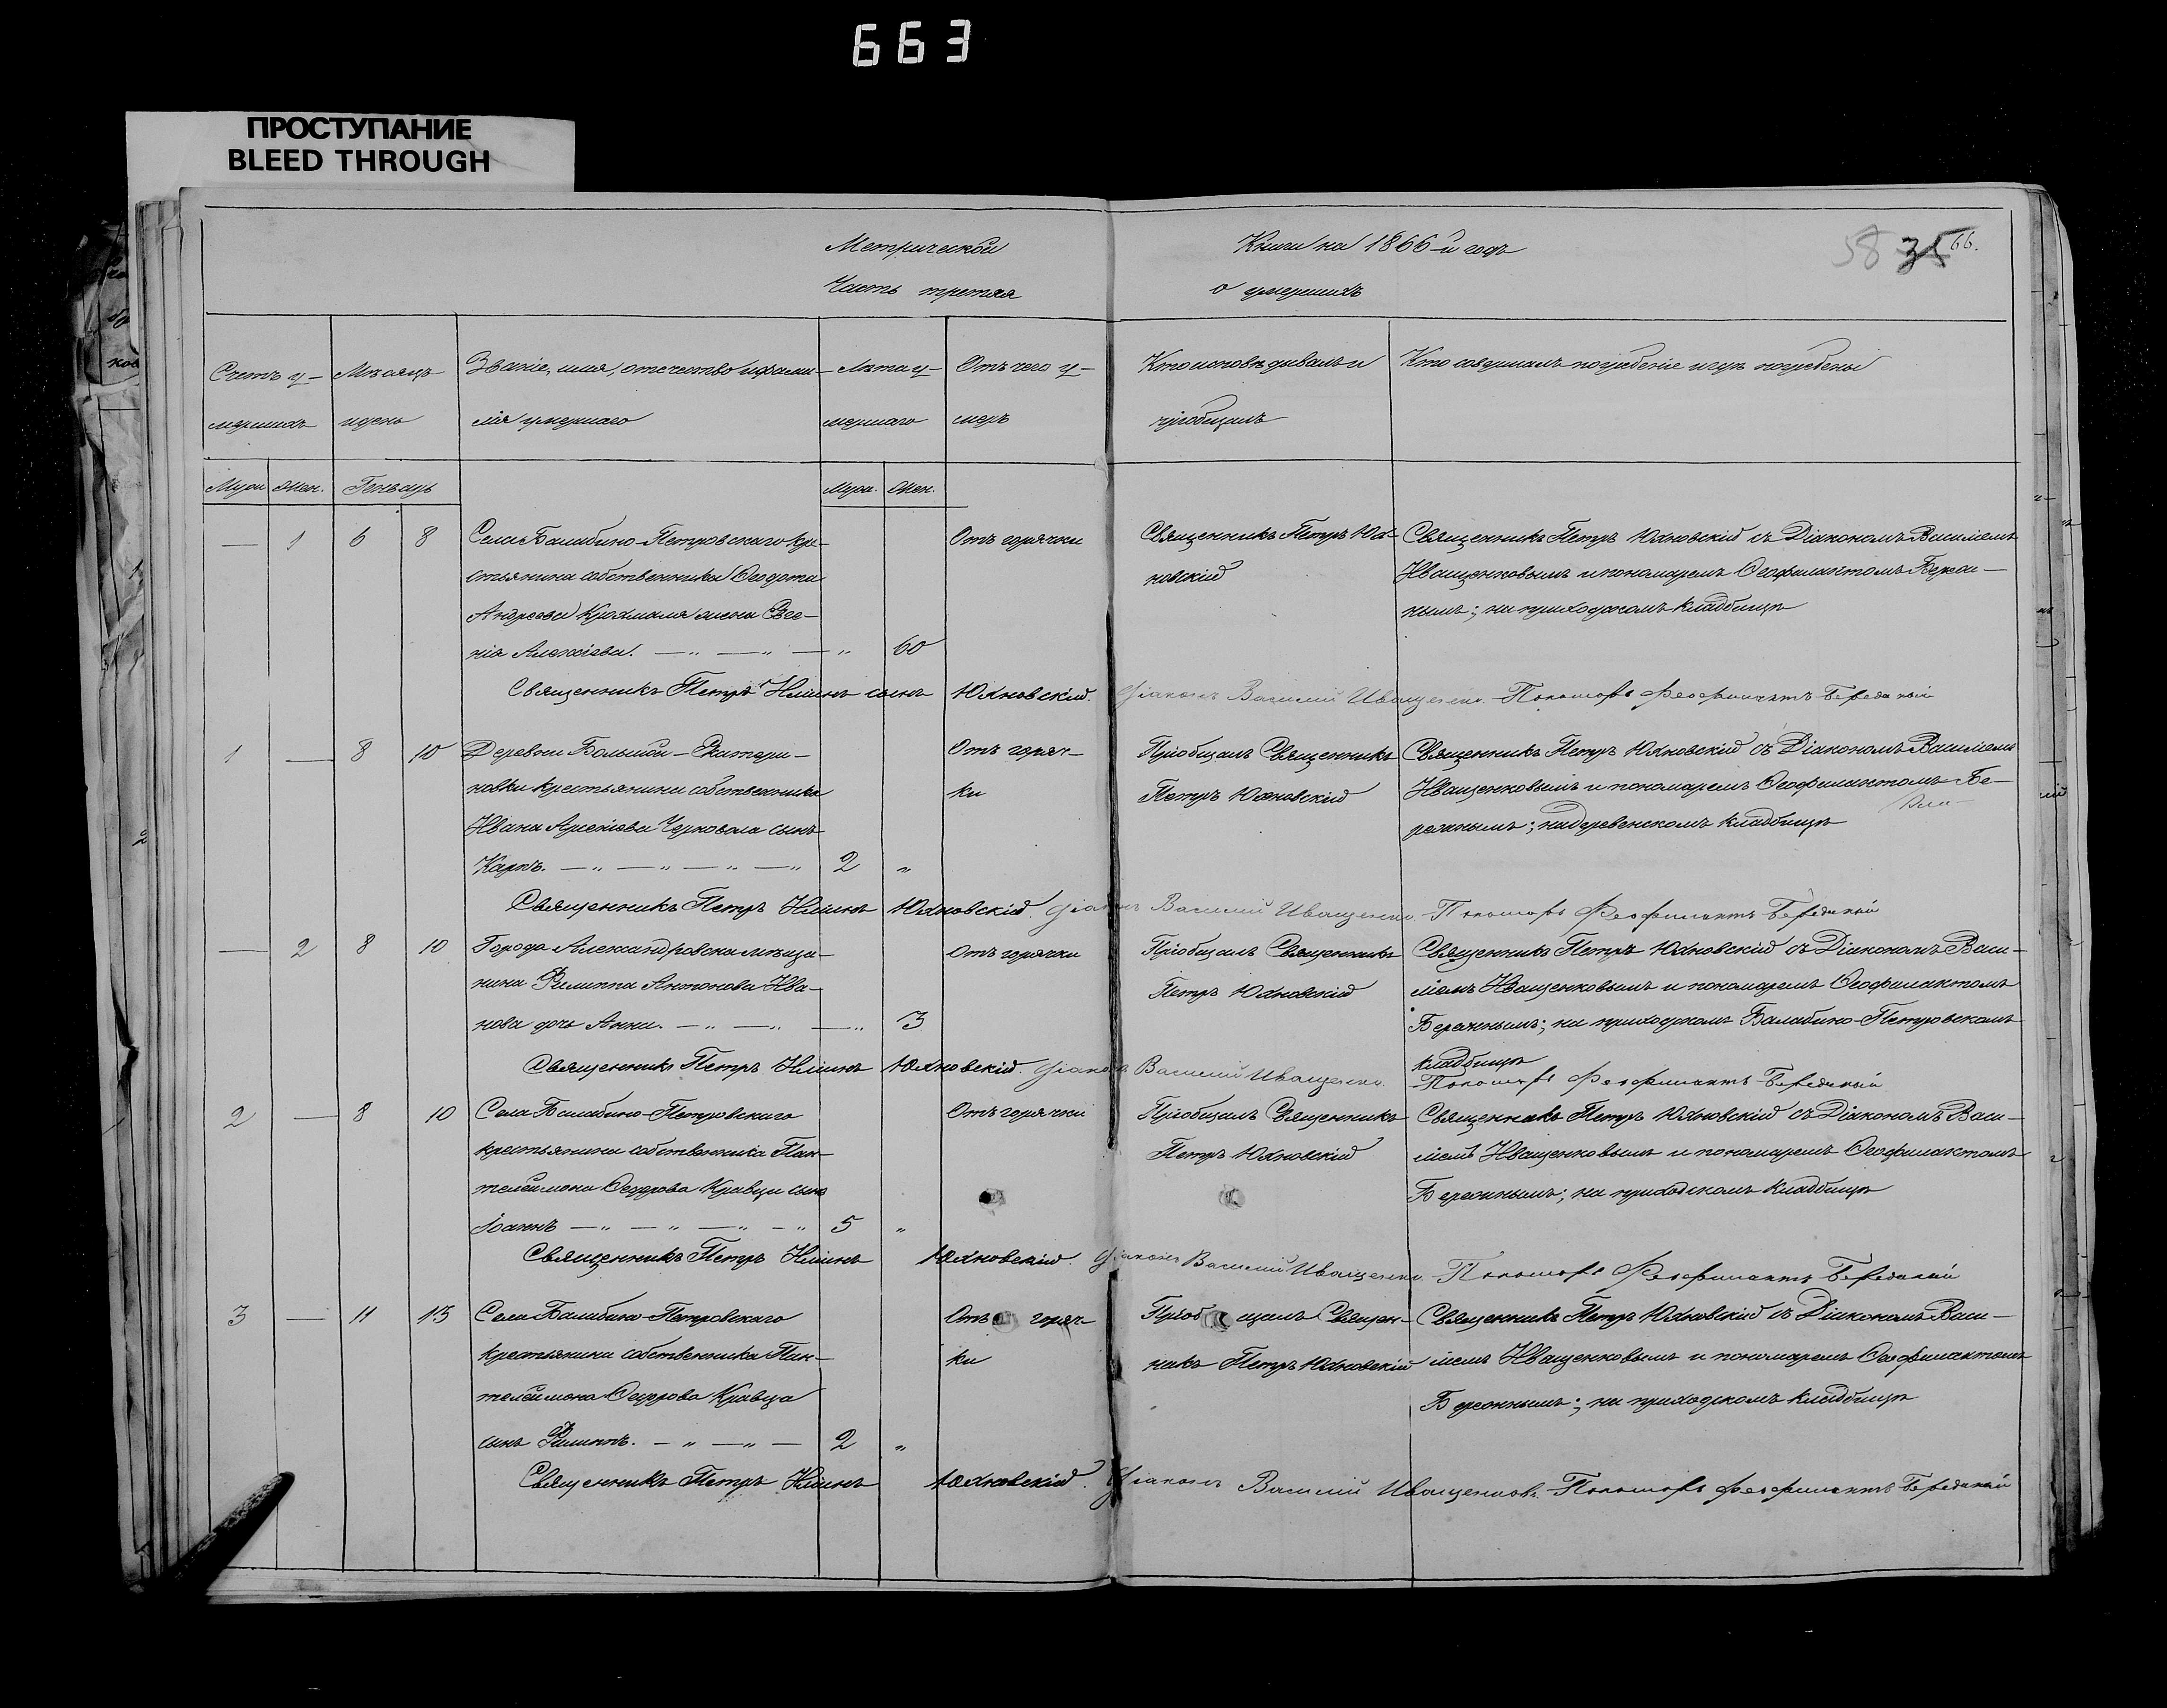 663
ПРОСТУПАНИЕ
BLEED THROUGH
Метрической Книги на 1866-й годъ
58 35 66.
Часть третяя о умершихъ
Счетъ у-
мершихъ
Мѣсяцъ
и день
Званіе, имя, отечество и фами-
лія умершаго
Лѣта у-
мершаго
Отъ чего у-
меръ
Кто исповѣдывалъ и
пріобщалъ
Кто совершалъ погребеніе и гдѣ погребены
Муж. Жен. Генварь Муж. Жен.
— 1 6 8
Села Балабино-Петровскаго кре-
стьянина собственника Ѳеодота
Андреева Крохмаля жена
нія Алексіева. — „ — „ — „ 60
Отъ горячки
Священникъ Петръ Юх-
новскій
Священникъ Петръ Юхновскій съ Діакономъ Василіемъ
Иващенковымъ и пономаремъ Ѳеофилактомъ Береж-
нымъ; на приходскомъ кладбищѣ
Священникъ Петръ Іліинъ сынъ Юхновскій. Діаконъ Василій Иващенко. Пономарь Феофилактъ Бережный
1 — 8 10
Деревни Большой-Екатери-
новки крестьянина собственника
Ивана Арсеніева сынъ
Карпъ. — „ — „ — „ — „ 2 „
Отъ горяч-
ки
Пріобщалъ Священникъ
Петръ Юхновскій
Священникъ Петръ Юхновскій съ Діакономъ Василіемъ
Иващенковымъ и пономаремъ Ѳеофилактомъ Бе-
режнымъ; на деревенскомъ кладбищѣ
Священникъ Петръ Іліинъ Юхновскій. Діаконъ Василій Иващенко. Пономарь Феофилактъ Бережный
— 2 8 10
Города Александровска мѣща-
нина Филиппа Антонова Ива-
нова дочь Анна. — „ — „ — „ 3
Отъ горячки
Пріобщалъ Священникъ
Петръ Юхновскій
Священникъ Петръ Юхновскій съ Діакономъ Васи-
ліемъ Иващенковымъ и пономаремъ Ѳеофилактомъ
Бережнымъ; на приходскомъ Балабино-Петровскомъ
кладбищѣ
Священникъ Петръ Іліинъ Юхновскій. Діаконъ Василій Иващенко. Пономарь Феофилактъ Бережный
2 — 8 10
Села Балабино-Петровскаго
крестьянина собственника Пан-
телеймона Ѳедорова Кравца сынъ
Іоаннъ — „ — „ — „ — „ 5 „
Отъ горячки
Пріобщалъ Священникъ
Петръ Юхновскій
Священникъ Петръ Юхновскій съ Діакономъ Васи-
ліемъ Иващенковымъ и пономаремъ Ѳеофилактомъ
Бережнымъ; на приходскомъ кладбищѣ
Священникъ Петръ Іліинъ Юхновскій. Діаконъ Василій Иващенко. Пономарь Феофилактъ Бережный
3 — 11 13
Села Балабино-Петровскаго
крестьянина собственника Пан-
телеймона Ѳедорова Кравца
сынъ Филиппъ. — „ — „ — 2 „
Отъ горяч-
ки
Пріобщалъ Священ-
никъ Петръ Юхновскій
Священникъ Петръ Юхновскій съ Діакономъ Васи-
ліемъ Иващенковымъ и пономаремъ Ѳеофилактомъ
Бережнымъ; на приходскомъ кладбищѣ
Священникъ Петръ Іліинъ Юхновскій. Діаконъ Василій Иващенковъ. Пономарь Феофилактъ Бережный